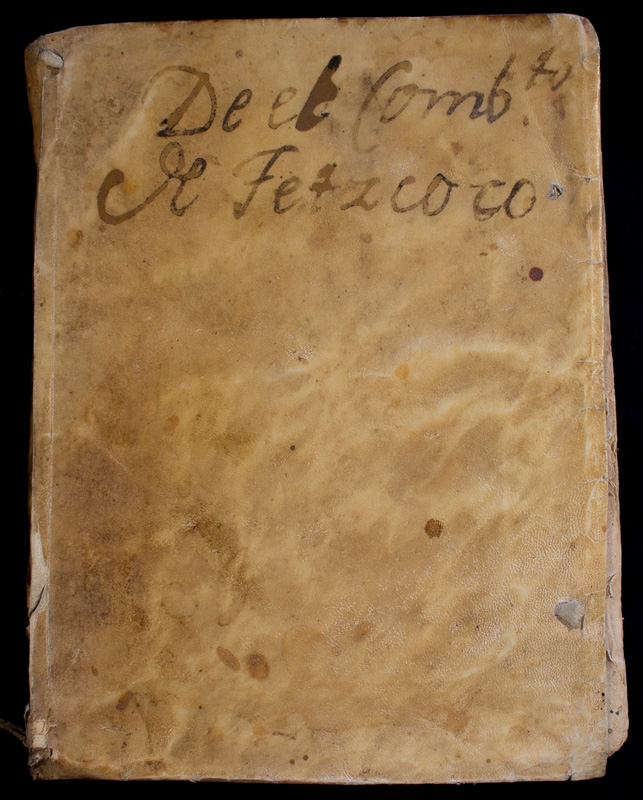 De el Comb.to
de Tetzcoco